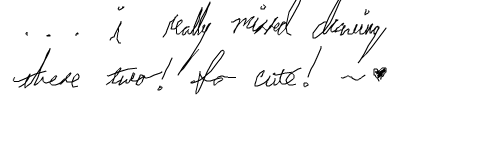 ... i really missed drawing
these two! so cute! ~♥